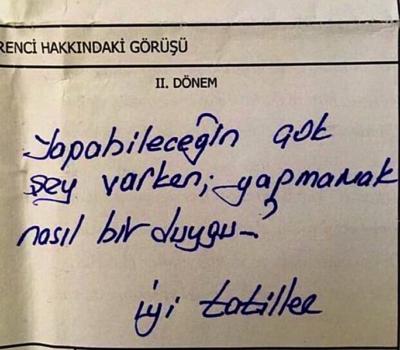 RENCİ HAKKINDAKİ GÖRÜŞÜ
II. DÖNEM
Yapabileceğin çok
şey varken; yapmamak
nasıl bir duygu-?
iyi tatiller